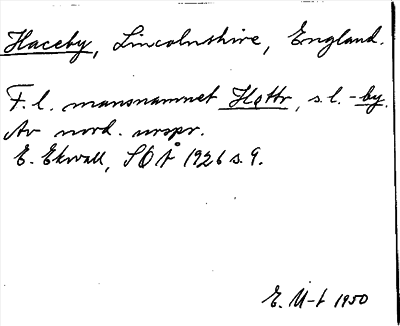 Haceby, Lincolnshire, England.
F.l. mansnamnet Hǫttr, s.l. -by.
Av nord. urspr.
E. Ekwall, SOÅ 1926 s. 9.
E. U-t 1950